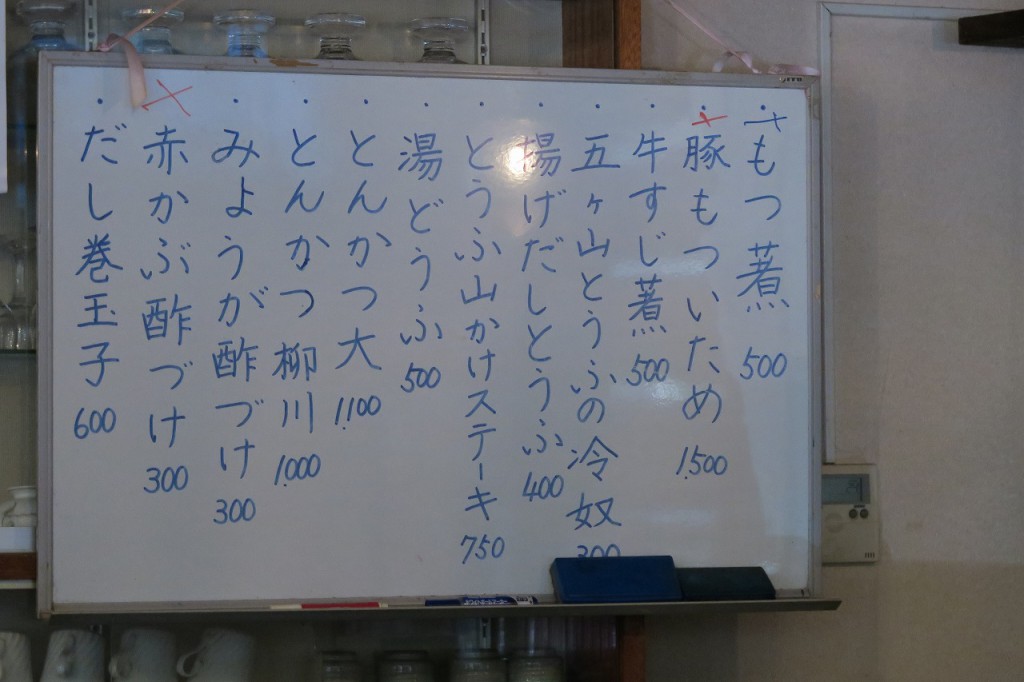 ・もつ煮 500
・豚もついため 1,500
・牛すじ煮 500
・五ヶ山とうふの冷奴 300
・揚げだしとうふ 400
・とうふ山かけステーキ 750
・湯どうふ 500
・とんかつ大 1,100
・とんかつ柳川 1,000
・みょうが酢づけ 300
赤かぶ酢づけ 300
・だし巻玉子 600